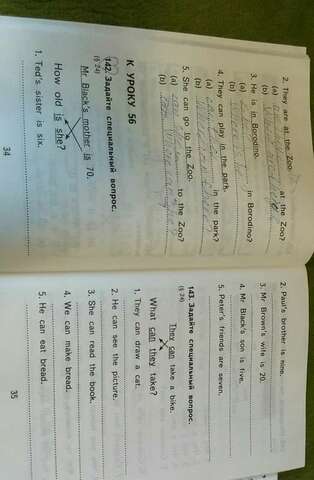 2. They are at the Zoo.
(a) at the Zoo?
(b)
3. He is in Borodino.
(a) in Borodino?
(b)
4. They can play in the park.
(a) in the park?
(b)
5. She can go to the Zoo.
(a) to the Zoo?
(b)
К УРОКУ 56
142. Задайте специальный вопрос.
(§ 24)
Mr Black's mother is 70.
How old is she?
1. Ted's sister is six.
34
2. Paul's brother is nine.
3. Mr Brown's wife is 20.
4. Mr Black's son is five.
5. Peter's friends are seven.
143. Задайте специальный вопрос.
They can take a bike.
What can they take?
1. They can draw a cat.
2. He can see the picture.
3. She can read the book.
4. We can make bread.
5. He can eat bread.
35